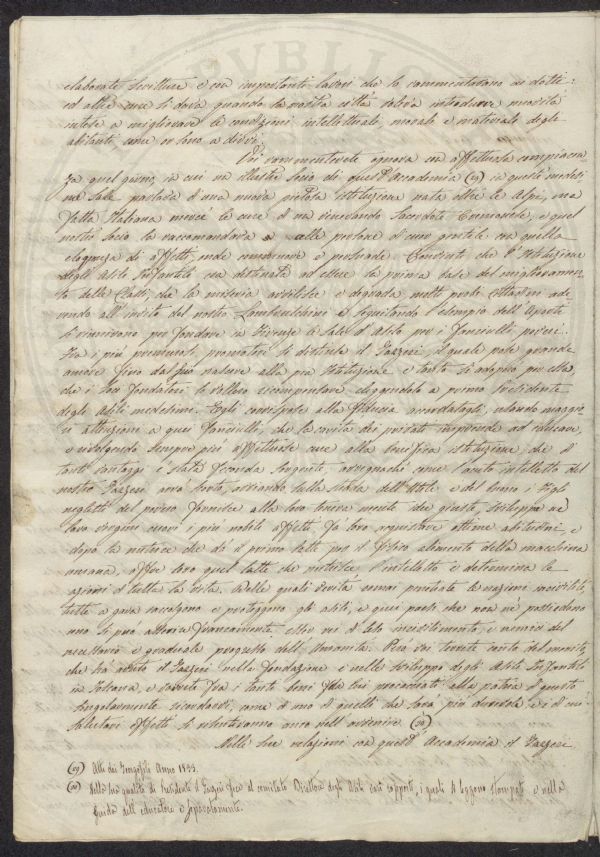 elaborate scritture e con importanti lavori che lo commentarono ai dotti:
ed altre cure si dava quando la nostra città voleva introdurre novità
intese a migliorare le condizioni intellettuale, morale e materiale degli
abitanti, come or sono a dirvi.
Voi rammenterete ognora con affettuosa compiacen-
za quel giorno, in cui un illustre Socio di quest'Accademia (29) in queste medesi-
me Sale parlava d'una nuova pietosa istituzione nata oltre le Alpi, ma
fatta Italiana mercè le cure d'un venerando Sacerdote Cremonese, e quel
nostro Socio la raccomandava alle persone di cuor gentile con quella
eloquenza di affetti, onde commuove e persuade. Convinti che l'istituzione
degli Asili Infantili era destinata ad essere la prima base del miglioramen-
to delle Classi, che la miseria avvilisce e degrada, molti probi cittadini ade-
rendo all'invito del nostro Lambruschini e seguitando l'esempio dell'Aporti
si riunivano per fondare in Firenze le Sale d'Asilo per i fanciulli poveri.
Fra i più premurosi promotori si distinse il Gazzeri, il quale pose grande
amore fino dal suo nascere alla pia istituzione e tanto si adoprò per ella,
che i soci fondatori lo vollero ricompensare eleggendolo a primo Presidente
degli Asili medesimi. Egli corrispose alla fiducia accordatagli, usando maggio-
re attenzione a quei fanciulli, che la carità dei privati imprende ad educare,
e rivolgendo sempre più affettuose cure alla benefica istituzione, che di
tanti vantaggi è stata feconda sorgente, avvegnachè come l'acuto intelletto del
nostro Gazzeri avea scorto, avviando sulla strada dell'Utile e del buono i figli
negletti del povero fornisce alla loro tenera mente idee giuste, sviluppa ne'
loro vergini cuori i più nobili affetti, fa loro acquistare ottime abitudini, e
dopo la nutrice che dà il primo latte per il fisico alimento della macchina
umana, offre loro quel latte che nutrisce l'intelletto e determina le
azioni di tutta la vita. Delle quali verità ormai penetrate le nazioni incivilite,
tutte a gara accolgono e proteggono gli asili, e quei paesi che non ne possiedono
uno si può asserire francamente, esser rei di leso incivilimento, e nemici del
necessario e graduale progresso dell'Umanità. Però voi terrete conto del merito,
che ha avuto il Gazzeri nella fondazione e nello sviluppo degli Asili Infantili
in Toscana, e fra i tanti beni da lui procacciati alla patria di questo
singolarmente ricordarvi, come d'uno di quelli che sarà più durevole e i di cui
salutari effetti si risentiranno anco nell'avvenire (30)
Nelle sue relazioni con quest'Accademia il Gazzeri
(29) Atti dei Georgofili Anno 1833.
(30) Nella sua qualità di Presidente il Gazzeri fece al comitato Direttore degli Asili vari rapporti, i quali si leggono stampati e nella
Guida dell'educatore e separatamente.